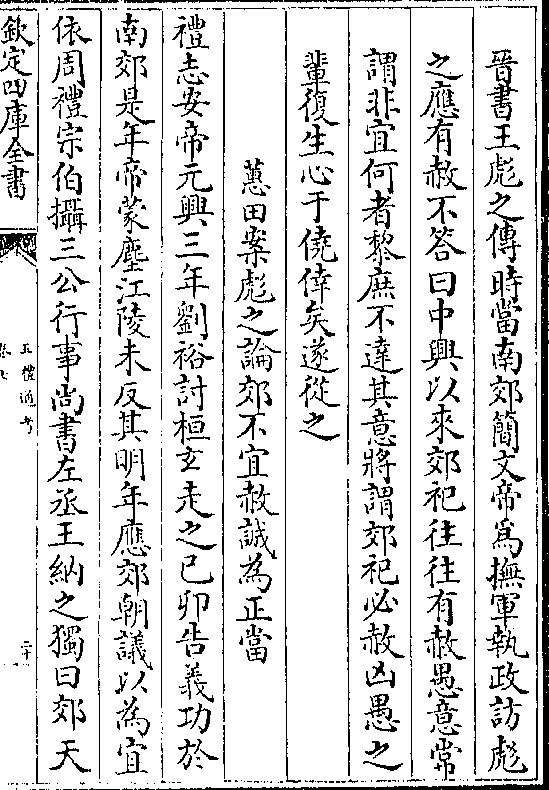 晉書王彪之傳時當南郊簡文帝爲撫軍執政訪彪
之應有赦不答曰中興以來郊祀往往有赦愚意常
謂非宜何者黎庶不達其意將謂郊祀必赦凶愚之
輩復生心于僥倖矣遂從之
蕙田案彪之論郊不宜赦誠為正當
禮志安帝元興三年劉裕討桓玄走之己卯告義功於
南郊是年帝蒙塵江陵未反其明年應郊朝議以為宜
依周禮宗伯攝三公行事尚書左丞王納之獨曰郊天
欽定四庫全書
五禮通考